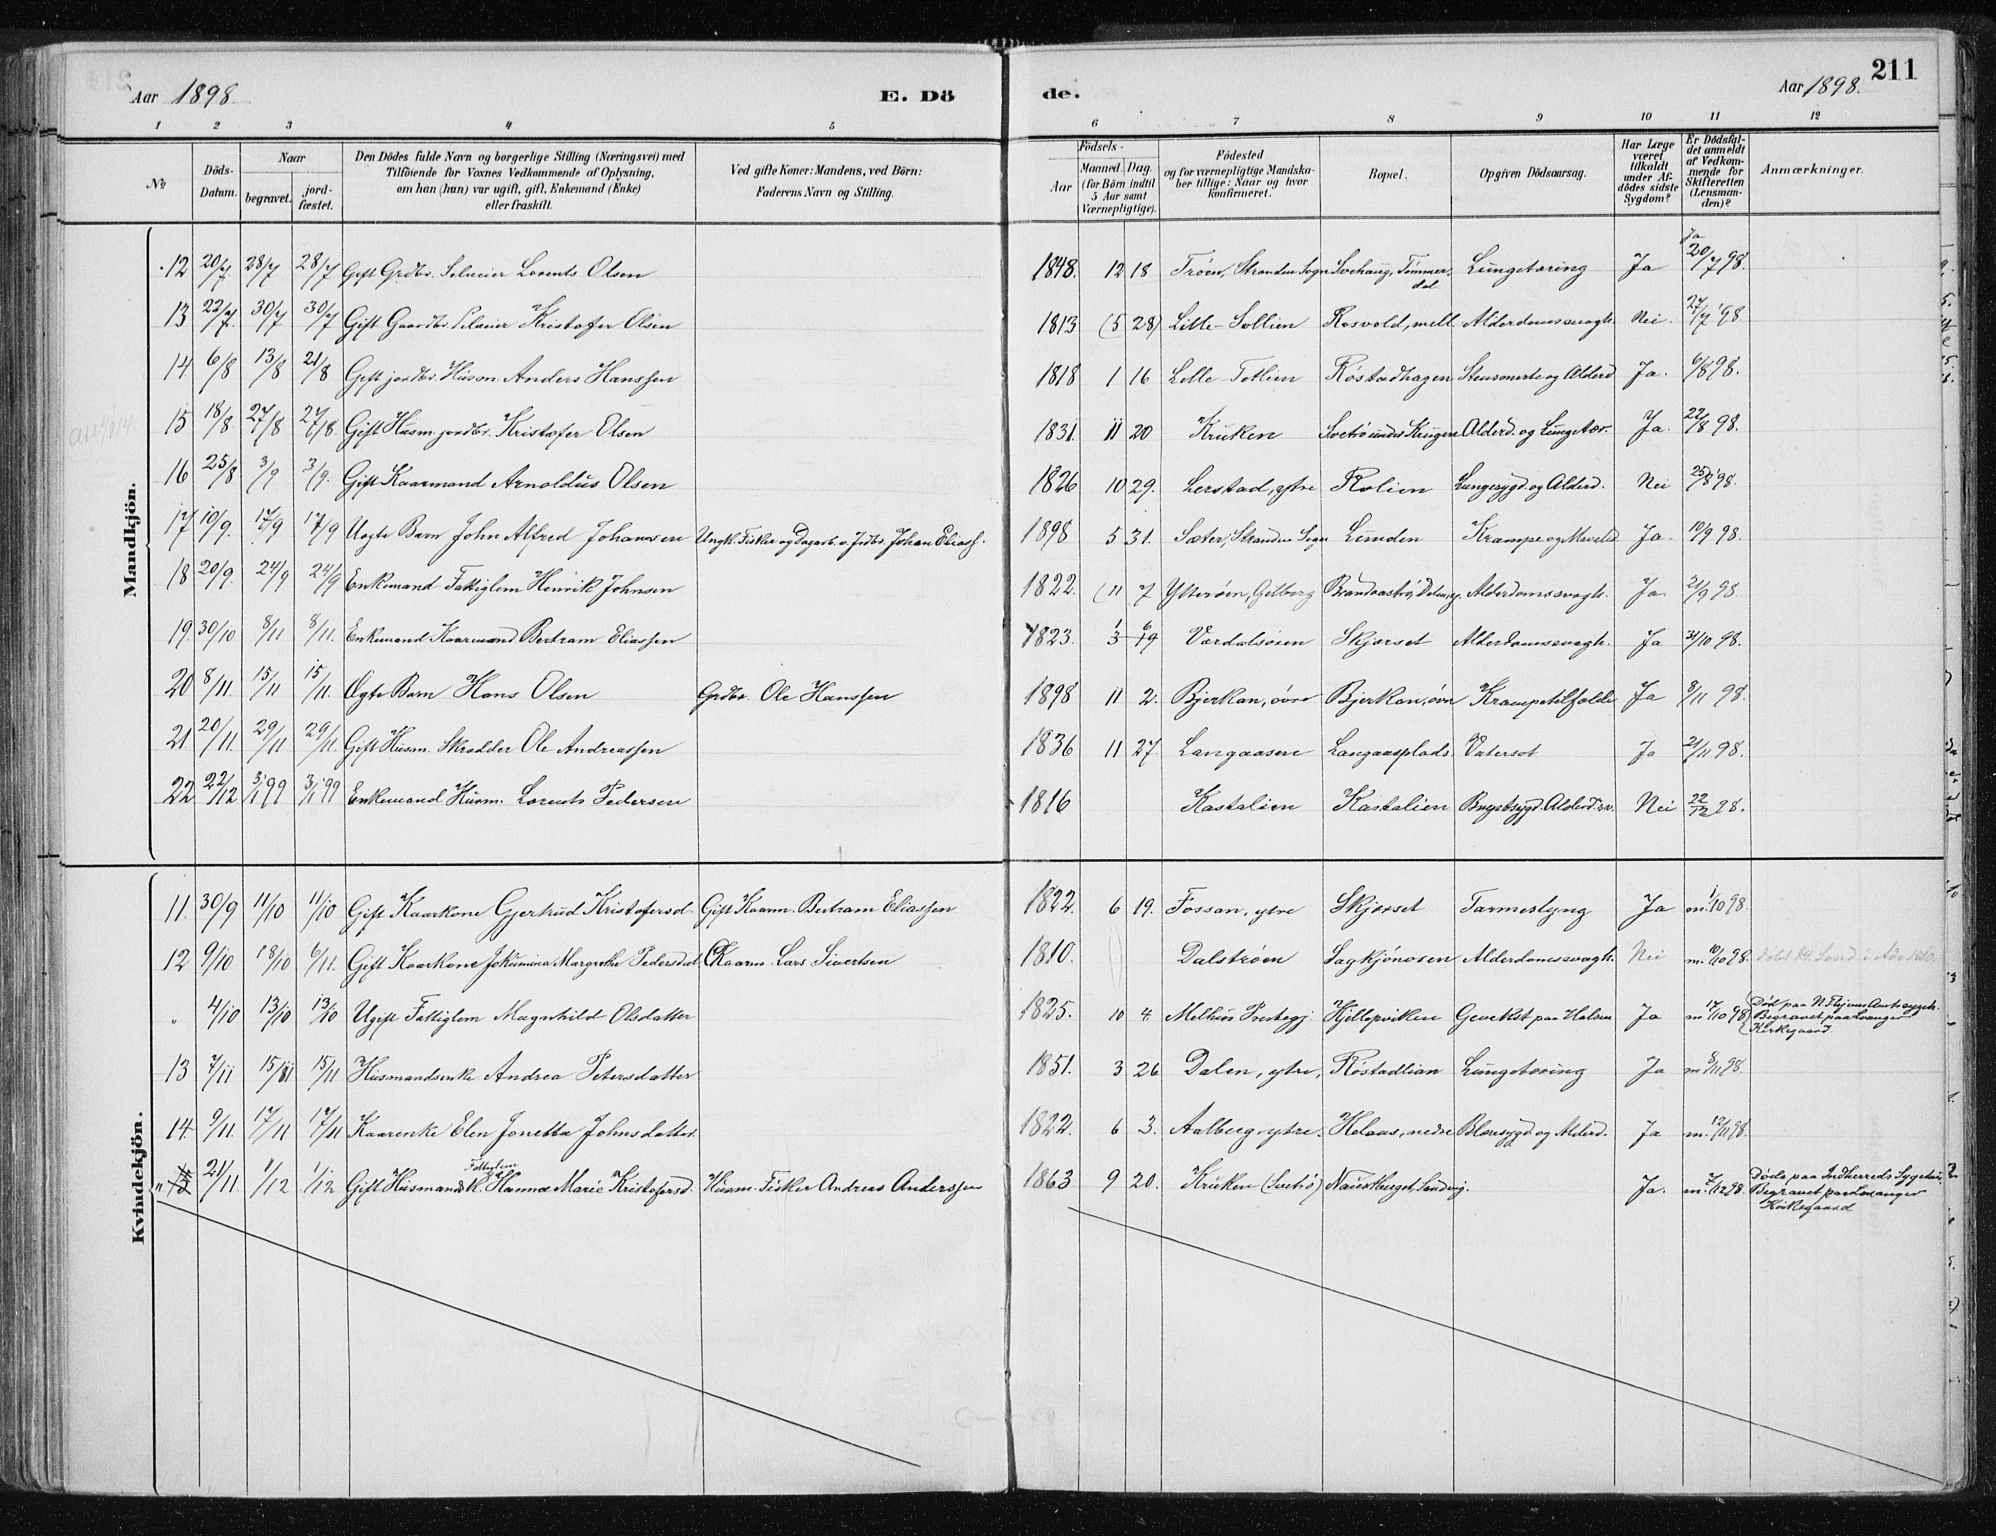 Aar 1898.
E. Dö
de.
Aar 1898.
211
1 2 3 4 5 6 7 8 9 10 11 12
No
Döds-Datum.
Naar
begravet.
jordfæstet.
Den Dödes fulde Navn og borgerlige Stilling (Næringsvei) med
Tilföiende for Voxnes Vedkommende af Oplysning,
om han (hun) var ugift, gift, Enkemand (Enke)
eller fraskilt.
Ved gifte Koner: Mandens, ved Börn:
Faderens Navn og Stilling.
Födsels-
Aar
Maaned. Dag.
(for Börn indtil
5 Aar samt
Værnepligtige).
Födested
og for værnepligtige Mandskaber tillige: Naar og hvor
konfirmeret.
Bopæl.
Opgiven Dödsaarsag.
Har Læge været tilkaldt under Afdödes sidste Sygdom?
Er Dödsfaldet anmeldt af Vedkommende for Skifteretten (Lensmanden)?
Anmærkninger.
Mandkjön.
12 20/7 28/7 28/7 Gift Grdbr. Selveier Lorents Olsen 1848. 12 18 Trøen, Stranden Sogn Svehaug, Tømmerdal Lungetæring Ja Ja 20/7 98.
13 22/7 30/7 30/7 Gift Gaardbr. Selveier Kristofer Olsen 1813 (5 28) Lille-Sollien Rosvold, mell. Alderdomssvagh. Nei 27/7 '98.
14 6/8 13/8 21/8 Gift jordbr. Husm. Anders Hanssen 1818 1 16 Lille-Tetlien Røstadhagen Stensmerte og Alderd. Ja. 6/8 98.
15 18/8. 27/8 27/8. Gift Husm. jordbr. Kristofer Olsen 1831. 11 20 Kruken Svetrø under Krugen Alderd. og Lungetær. Ja. 22/8 98.
16 25/8 3/9 3/9. Gift Kaarmand Arnoldus Olsen 1826 10 29. Lerstad, ytre Rolien Lungesygd. og Alderd. Nei 25/8 '98.
17 10/9. 17/9 17/9 Uægte Barn John Alfred Johansen Ungk. Fisker og Dagarb. Johan Eliass. 1898 5 31. Sæter, Stranden Sogn Lunden Krampe og Ja. 10/9 98.
18 20/9. 24/9 24/9 Enkemand Fattiglem Henrik Johnsen 1822. (11 7 Ytterøen, Gilberg Alderdomssvagh. Ja. 21/9 98.
19. 30/10 8/11 8/11. Enkemand Kaarmand Bertram Eliassen 1823. 3 19 1 6 Værdalsøren Skjerset Alderdomssvagh. Ja 31/10 98.
20 8/11. 15/11 15/11. Ægte Barn Hans Olsen Grdbr. Ole Hanssen 1898 11 2. Bjerkan, övre Bjerkan, övr. Krampetilfælde Ja 8/11 98.
21. 20/11. 29/11 29/11. Gift Husm. Skrædder Ole Andreassen 1836 11 27. Langaasen Langaasplads Vatersot Ja 21/11 98.
22 22/12 3/1 99 3/1 '99 Enkemand Husm. Lorents Pedersen 1816 Kastalien Kastalien Brystsygd. Alderd. Nei 22/12 98.
Kvindekjön.
11. 30/9 11/10 11/10 Gift Kaarkone Gjertrud Kristofersd. Gift Kaarm. Bertram Eliassen 1822. 6 19. Fossan, ytre Skjerset Tarmeslyng Ja m. 1/10 98.
12 9/10 18/10 6/11. Gift Kaarkone Jokumina Margrethe Pedersdat. Kaarm. Lars Sivertsen 1810. Dalstrøen Sagkjønosen Alderdomssvagh. Nei m. 10/10 98.
" 4/10 13/10 13/10 Ugift Fattiglem Magnhild Olsdatter 1825. 10 4 Melhus Prestegj. Hjellopviken Gevekst paa Halsen Ja m. 17/10 98. Død paa N. Thjems Amtssygeh. Begravet paa Levanger Kirkegaard.
13 7/11 15/11 15/11 Husmandsenke Andrea Petersdatter 1851. 3 26 Dalen, ytre, Røstadlian Lungetæring Ja m 8/11 98.
14. 9/11. 17/11 17/11 Kaarenke Elen Jonetta Johnsdatter. 1822. 6 3. Aalberg ytre. Helaas, nedre Blæresygd. og Alderd. Ja m. 12/11 98.
" 15 21/11. 1/12 1/12 Gift Husmandsk. Fattiglem Hanna Marie Kristofersd. Husm. Fisker Andreas Anderssen 1863 9 20. Kruken (Svetrø) Nausthuget, Sandvig. Ja. m. 7/12 98. Døde paa Indherreds Sygehus, Begravet paa Levanger Kirkegaard